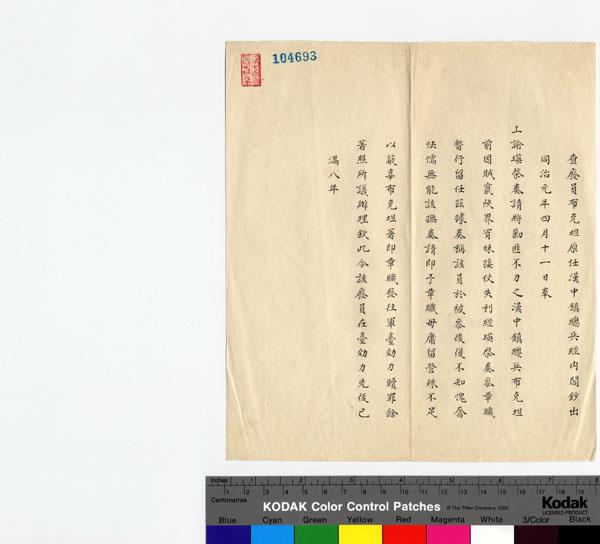 104693
查廢員布克坦原任漢中鎮總兵經內閣鈔出
同治元年四月十一日奉
上諭瑛棨奏請將勦匪不力之漢中鎮總兵布克坦
前因賊竄陝界甯陝接仗失利經瑛棨奏參革職
暫行留任茲據奏稱該員於被參後復不知愧奮
怯懦無能該撫奏請即予革職毋庸留營殊不足
以蔽辜布克坦著即革職發往軍臺効力贖罪餘
著照所議辦理欽此今該廢員在臺効力先後已
滿八年
Inches 1 2 3 4 5 6 7
Centimetres 1 2 3 4 5 6 7 8 9 10 11 12 13 14 15 16 17 18 19
KODAK Color Control Patches © The Tiffen Company, 2000 Kodak
LICENSED PRODUCT
Blue Cyan Green Yellow Red Magenta White 3/Color Black